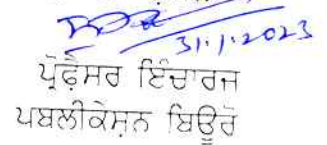 31.1.2023
ਪ੍ਰੋਫ਼ੈਸਰ ਇੰਚਾਰਜ
ਪਬਲੀਕੇਸ਼ਨ ਬਿਊਰੋ